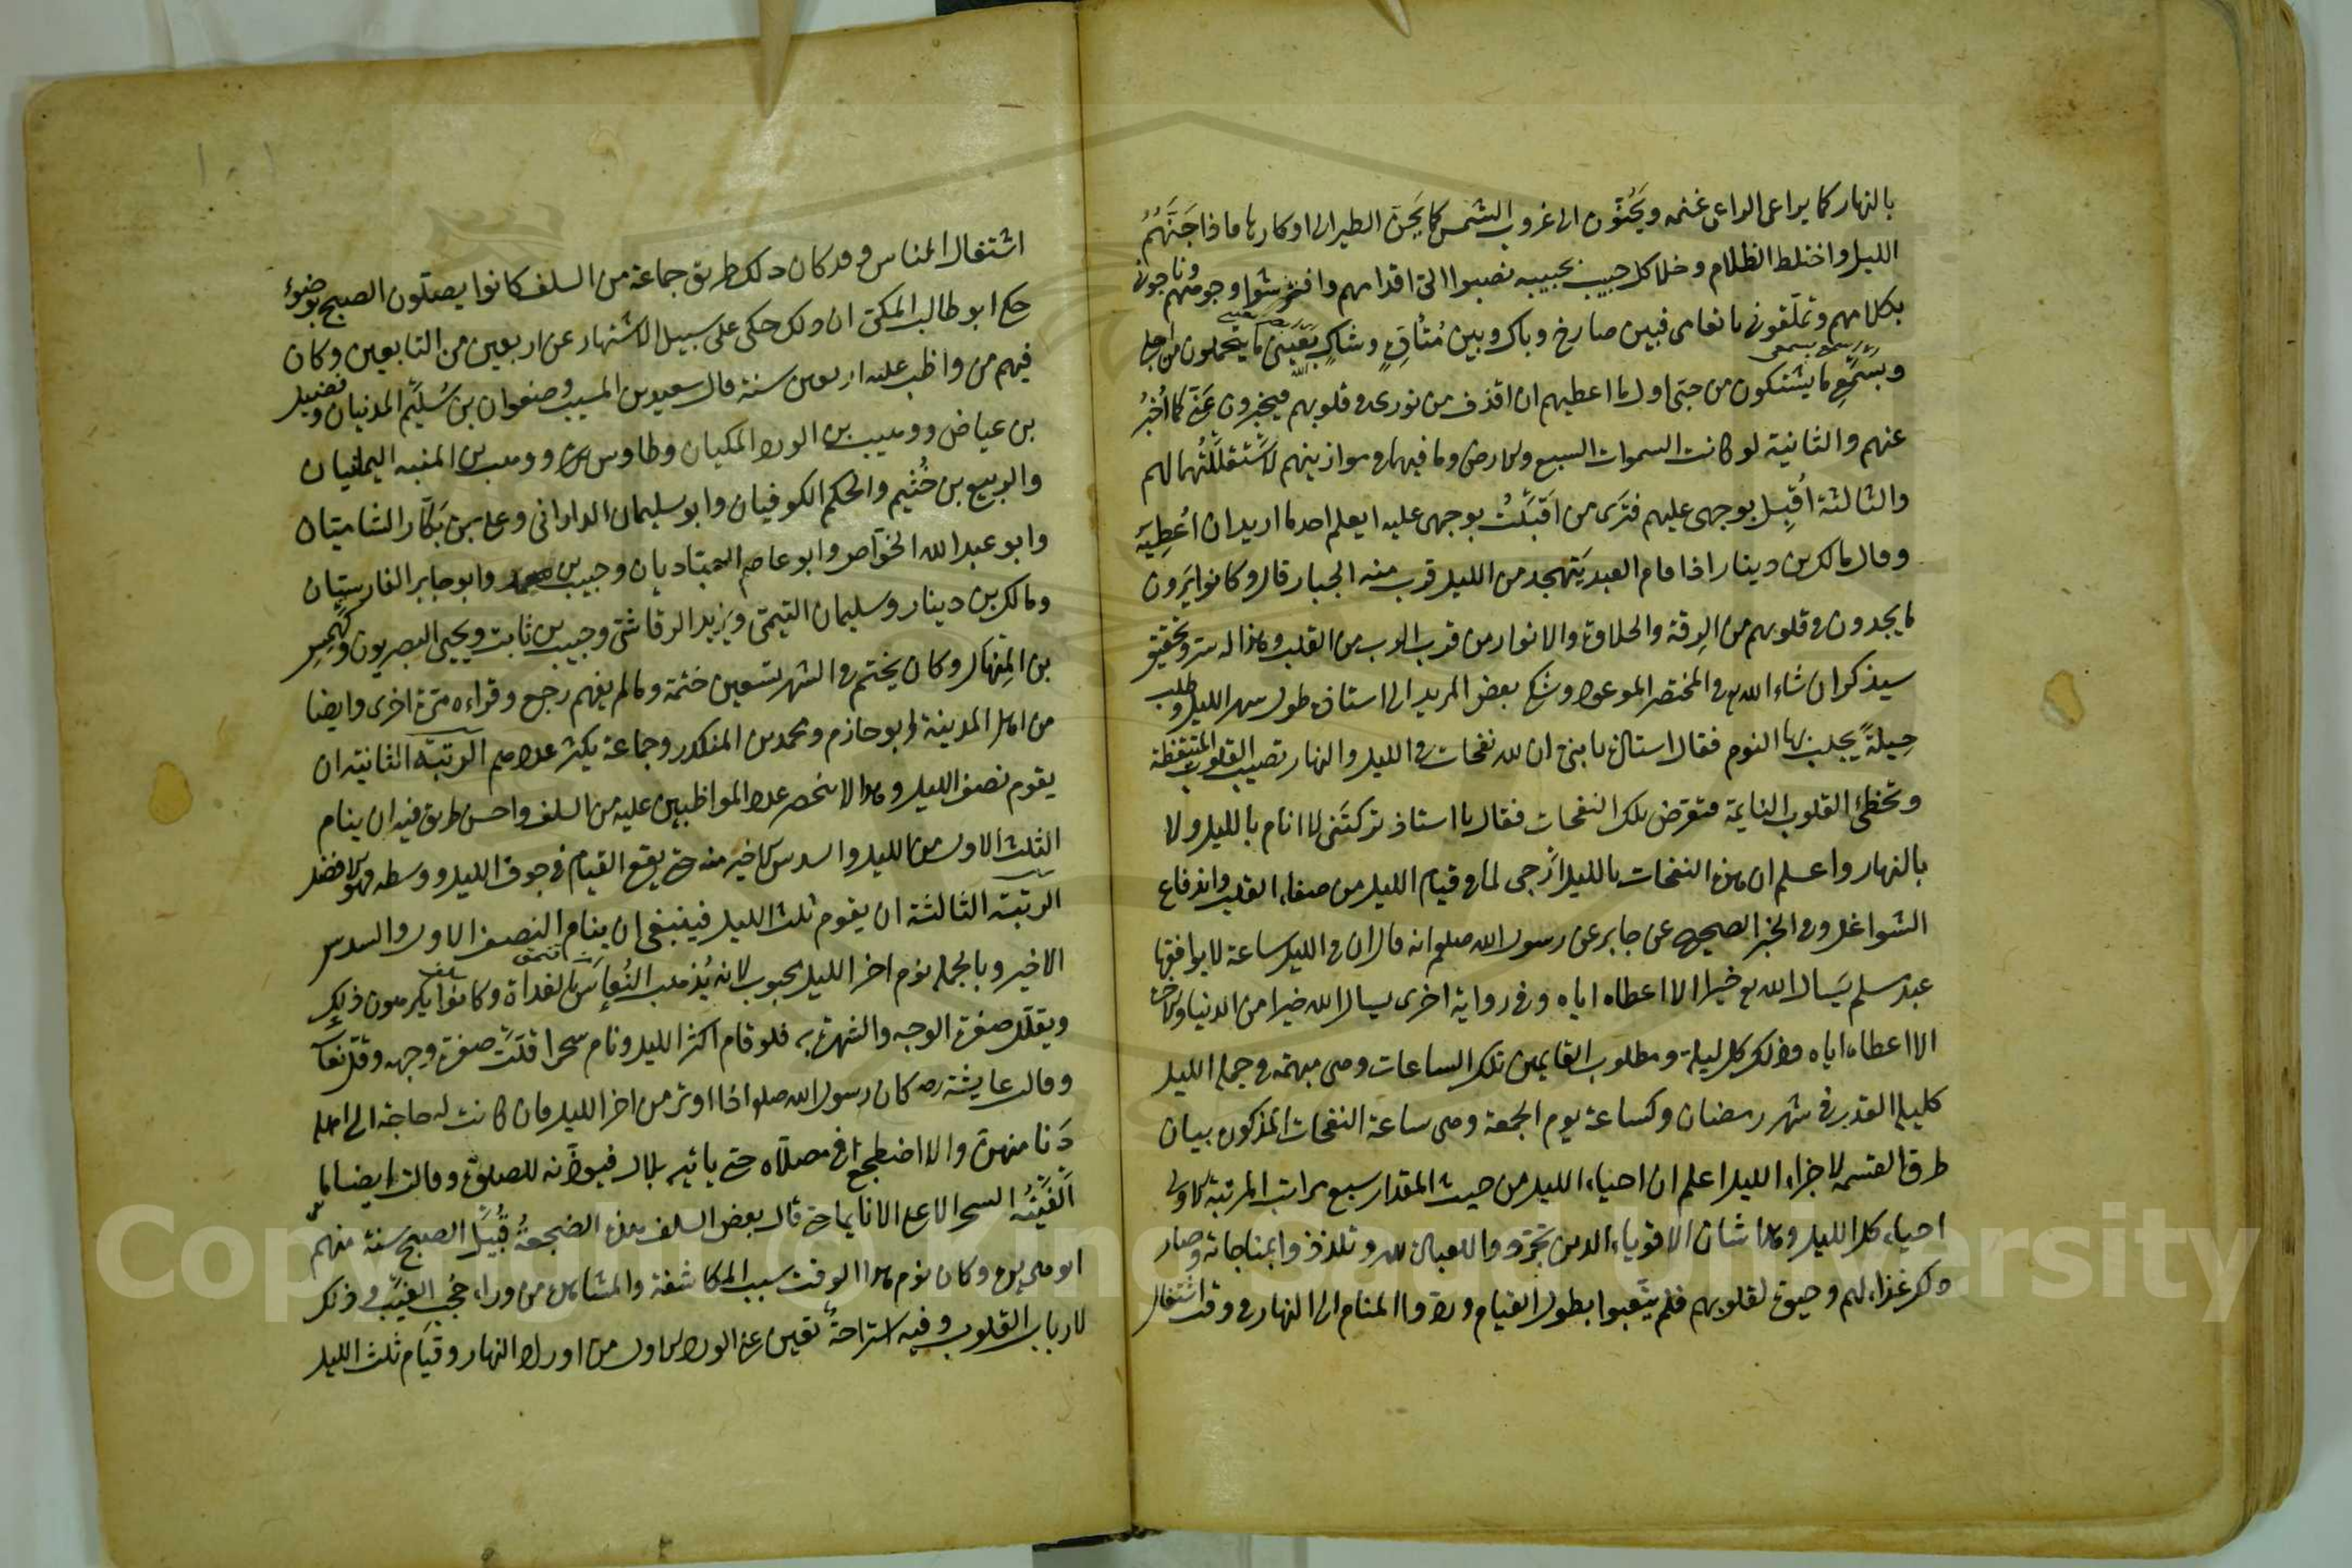 بالنهار كما يراعى الراعى غنمه ويحنّون الى غروب الشمس كما يحنّ الطير الى اوكارها فاذا جنّهم
الليل واختلط الظلام وخلا كل حبيب بحبيبه نصبوا الىّ اقدامهم وافترشوا وجوههم وناجونى
بكلامهم وتملّقونى بانعامى فبين صارخ وباك وبين متاوّه وشاك بعينى ما يتحملون من اجلى
وبسمعى ما يشتكون من حبّى اول ما اعطيهم ان اقذف من نورى فى قلوبهم فيخبرون عنّى كما اُخبر
عنهم والثانية لو كانت السموات السبع والارض وما فيهما فى موازينهم لاستقللتها لهم
والثالثة اُقبل بوجهى عليهم فترى من اقبلتُ بوجهى عليه ايعلم احد ما اريد ان اُعطيه
وقال مالك بن دينار اذا قام العبد يتهجد من الليل قرب منه الجبار قال وكانوا يرون
ما يجدون فى قلوبهم من الرقة والحلاوة والانوار من قرب الرب من القلب وهذا له سر وتحقيق
سيذكر ان شاء الله فى المختصر الموعود وشكى بعض المريد الى استاذه طول سهر الليل وطلب
حيلةً يجلب بها النوم فقال استاذه يا بنى ان لله نفحات فى الليل والنهار تصيب القلوب المتيقظة
وتخطئ القلوب النايمة فتعرض بتلك النفحات فقال يا استاذ تركتنى لا انام بالليل ولا
بالنهار واعلم ان هذه النفحات بالليل ارجى لما فى قيام الليل من صفاء القلب واندفاع
الشواغل وفى الخبر الصحيح عن جابر عن رسول الله صلعم انه قال ان فى الليل ساعة لا يوافقها
عبد مسلم يسال الله خيرا الا اعطاه اياه وفى رواية اخرى يسال الله خيرا من الدنيا والاخرة
الا اعطاه اياه وذلك كل ليلة ومطلوب القايمين تلك الساعات وهى مبهمة فى جملة الليل
كليلة القدر فى شهر رمضان وكساعة يوم الجمعة وهى ساعة النفحات المذكورة بيان
طرق القسمة لاجزاء الليل اعلم ان احياء الليل من حيث المقدار سبع مراتب المرتبة الاولى
احياء كل الليل وهذا شان الاقوياء الذين تجردوا للعبادة لله وتلذذوا بمناجاته وصار
ذلك غذاء لهم وحيوة لقلوبهم فلم يتعبوا بطول القيام وردوا المنام الى النهار فى وقت اشتغال
١٠١
اشتغال الناس وقد كان ذلك طريق جماعة من السلف كانوا يصلون الصبح بوضوء
حكى ابو طالب المكى ان ذلك حكى على سبيل الاشتهار عن اربعين من التابعين وكان
فيهم من واظب عليه اربعين سنة قال سعيد بن المسيب وصفوان بن سُليم المدنيان وفضيل
بن عياض ووهيب بن الورد المكيان وطاوس ووهب بن المنبه اليمانيان
والربيع بن خُثيم والحكم الكوفيان وابو سليمان الدارانى وعلى بن بكّار الشاميان
وابو عبد الله الخوّاص وابو عاصم العبّاديان وحبيب بن محمد وابو جابر الفارسيان
ومالك بن دينار وسليمان التيمى ويزيد الرقاشى وحبيب بن ثابت ويحيى البصريون وكهمس
بن المنهال وكان يختم فى الشهر تسعين ختمة وما لم يفهم رجع وقراءه مرة اخرى وايضا
من اهل المدينة ابو حازم ومحمد بن المنكدر وجماعة يكثر عددهم الرتبة الثانية ان
يقوم نصف الليل وهذا لا ينحصر عدد المواظبين عليه من السلف واحسن طريق فيه ان ينام
الثلث الاول من الليل والسدس الاخير منه حتى يقع القيام فى جوف الليل ووسطه فهو الافضل
الرتبة الثالثة ان يقوم ثلث الليل فينبغى ان ينام النصف الاول والسدس
الاخير وبالجملة نوم اخر الليل محبوب لانه يُذهب النُعاس بالغداة وكانوا يكرهون ذلك
ويقلّل صفرة الوجه والشهرة به فلو قام اكثر الليل ونام سحرا قلّت صفرة وجهه وقلّ نعاسه
وقالت عايشة رضه كان رسول الله صلعم اذا اوتر من اخر الليل فان كانت له حاجة الى اهله
دنا منهنّ والا اضطجع فى مصلّاه حتى ياتيه بلال فيوذّنه للصلوة وقالت ايضا ما
الفيتُه السحر الاعلى الا نايما حتى قال بعض السلف هذه الضجعةُ قُبيل الصبح سنة منهم
ابو هريرة وكان نوم هذا الوقت سبب المكاشفة والمشاهدة من وراء حُجب الغيب وذلك
لارباب القلوب وفيه استراحةٌ تعين على الورد الاول من اوراد النهار وقيام ثلث الليل
Copyright © King Saud University